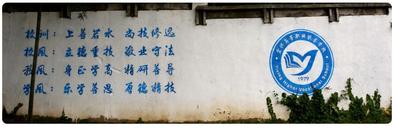 校训：上善若水 尚技修远
校风：立德重技 敬业守法
教风：身正学高 精研善导
学风：乐学善思 厚德精技
1979